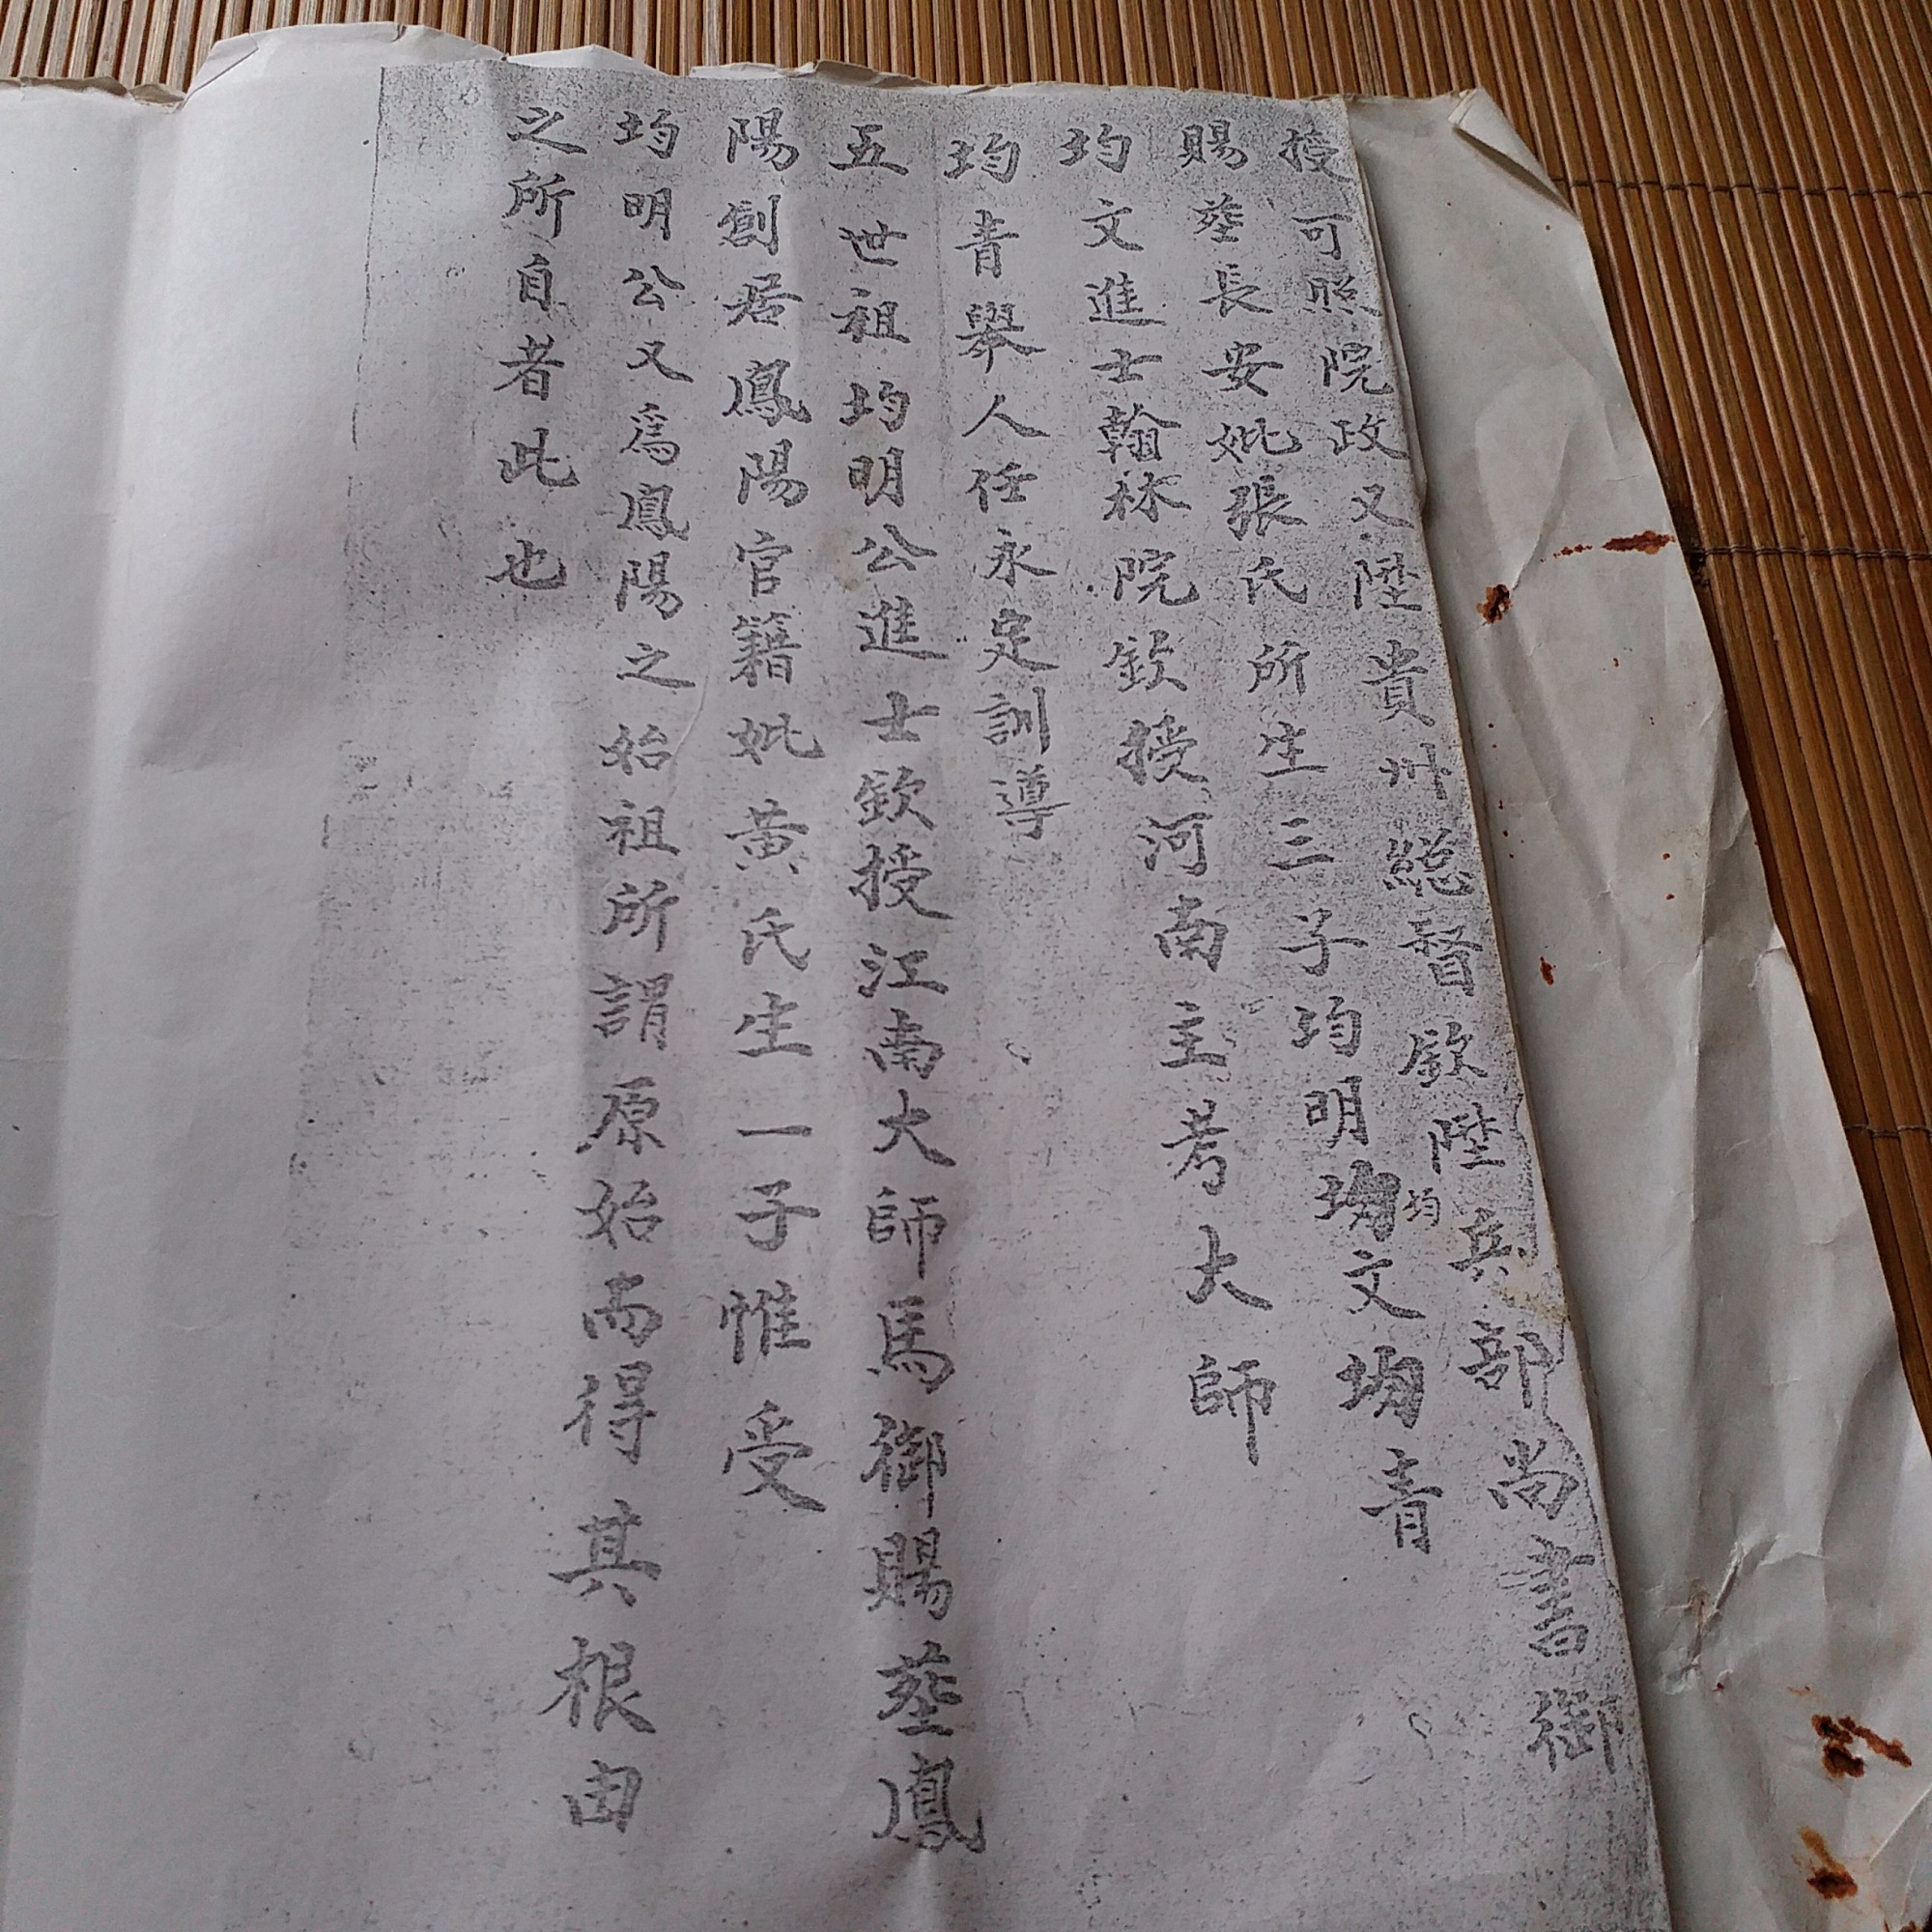 授可照院政又陞貴州總督欽陞兵部尚書御
賜塟長安妣張氏所生三子均明均文均青
均
均文進士翰林院欽授河南主考大師
均青舉人任永定訓導
五世祖均明公進士欽授江南大師馬御賜塟鳳
陽創居鳳陽官籍妣黃氏生一子惟受
均明公又爲鳳陽之始祖所謂原始而得其根由
之所自者此也